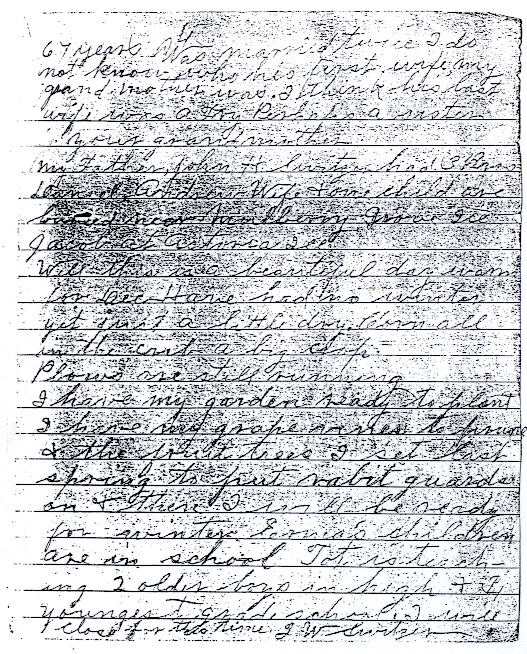 67 years was married twice I do
not know who his first wife my
grand mother was. I think his last
wife was a Fry Perhaps a sister
your grandmother
my Father John H Switzer had
Wife & one child are
buried near Mulberry Grove Ill
Jacob at Astoria Ill
Well this is a beautiful day warm
for Dec Have had no winter
yet just a little dry. Corn all
in the crib a big crop.
Plows are still running
I have my garden ready to plant
I have my grape vines to prune
& the fruit trees I set last
spring to put rabit guards
on & then I will be redy
for winter children
are in school Tot is teach-
ing 2 older boys in high &
youngest grade school. I will
close for this time. J W Switzer